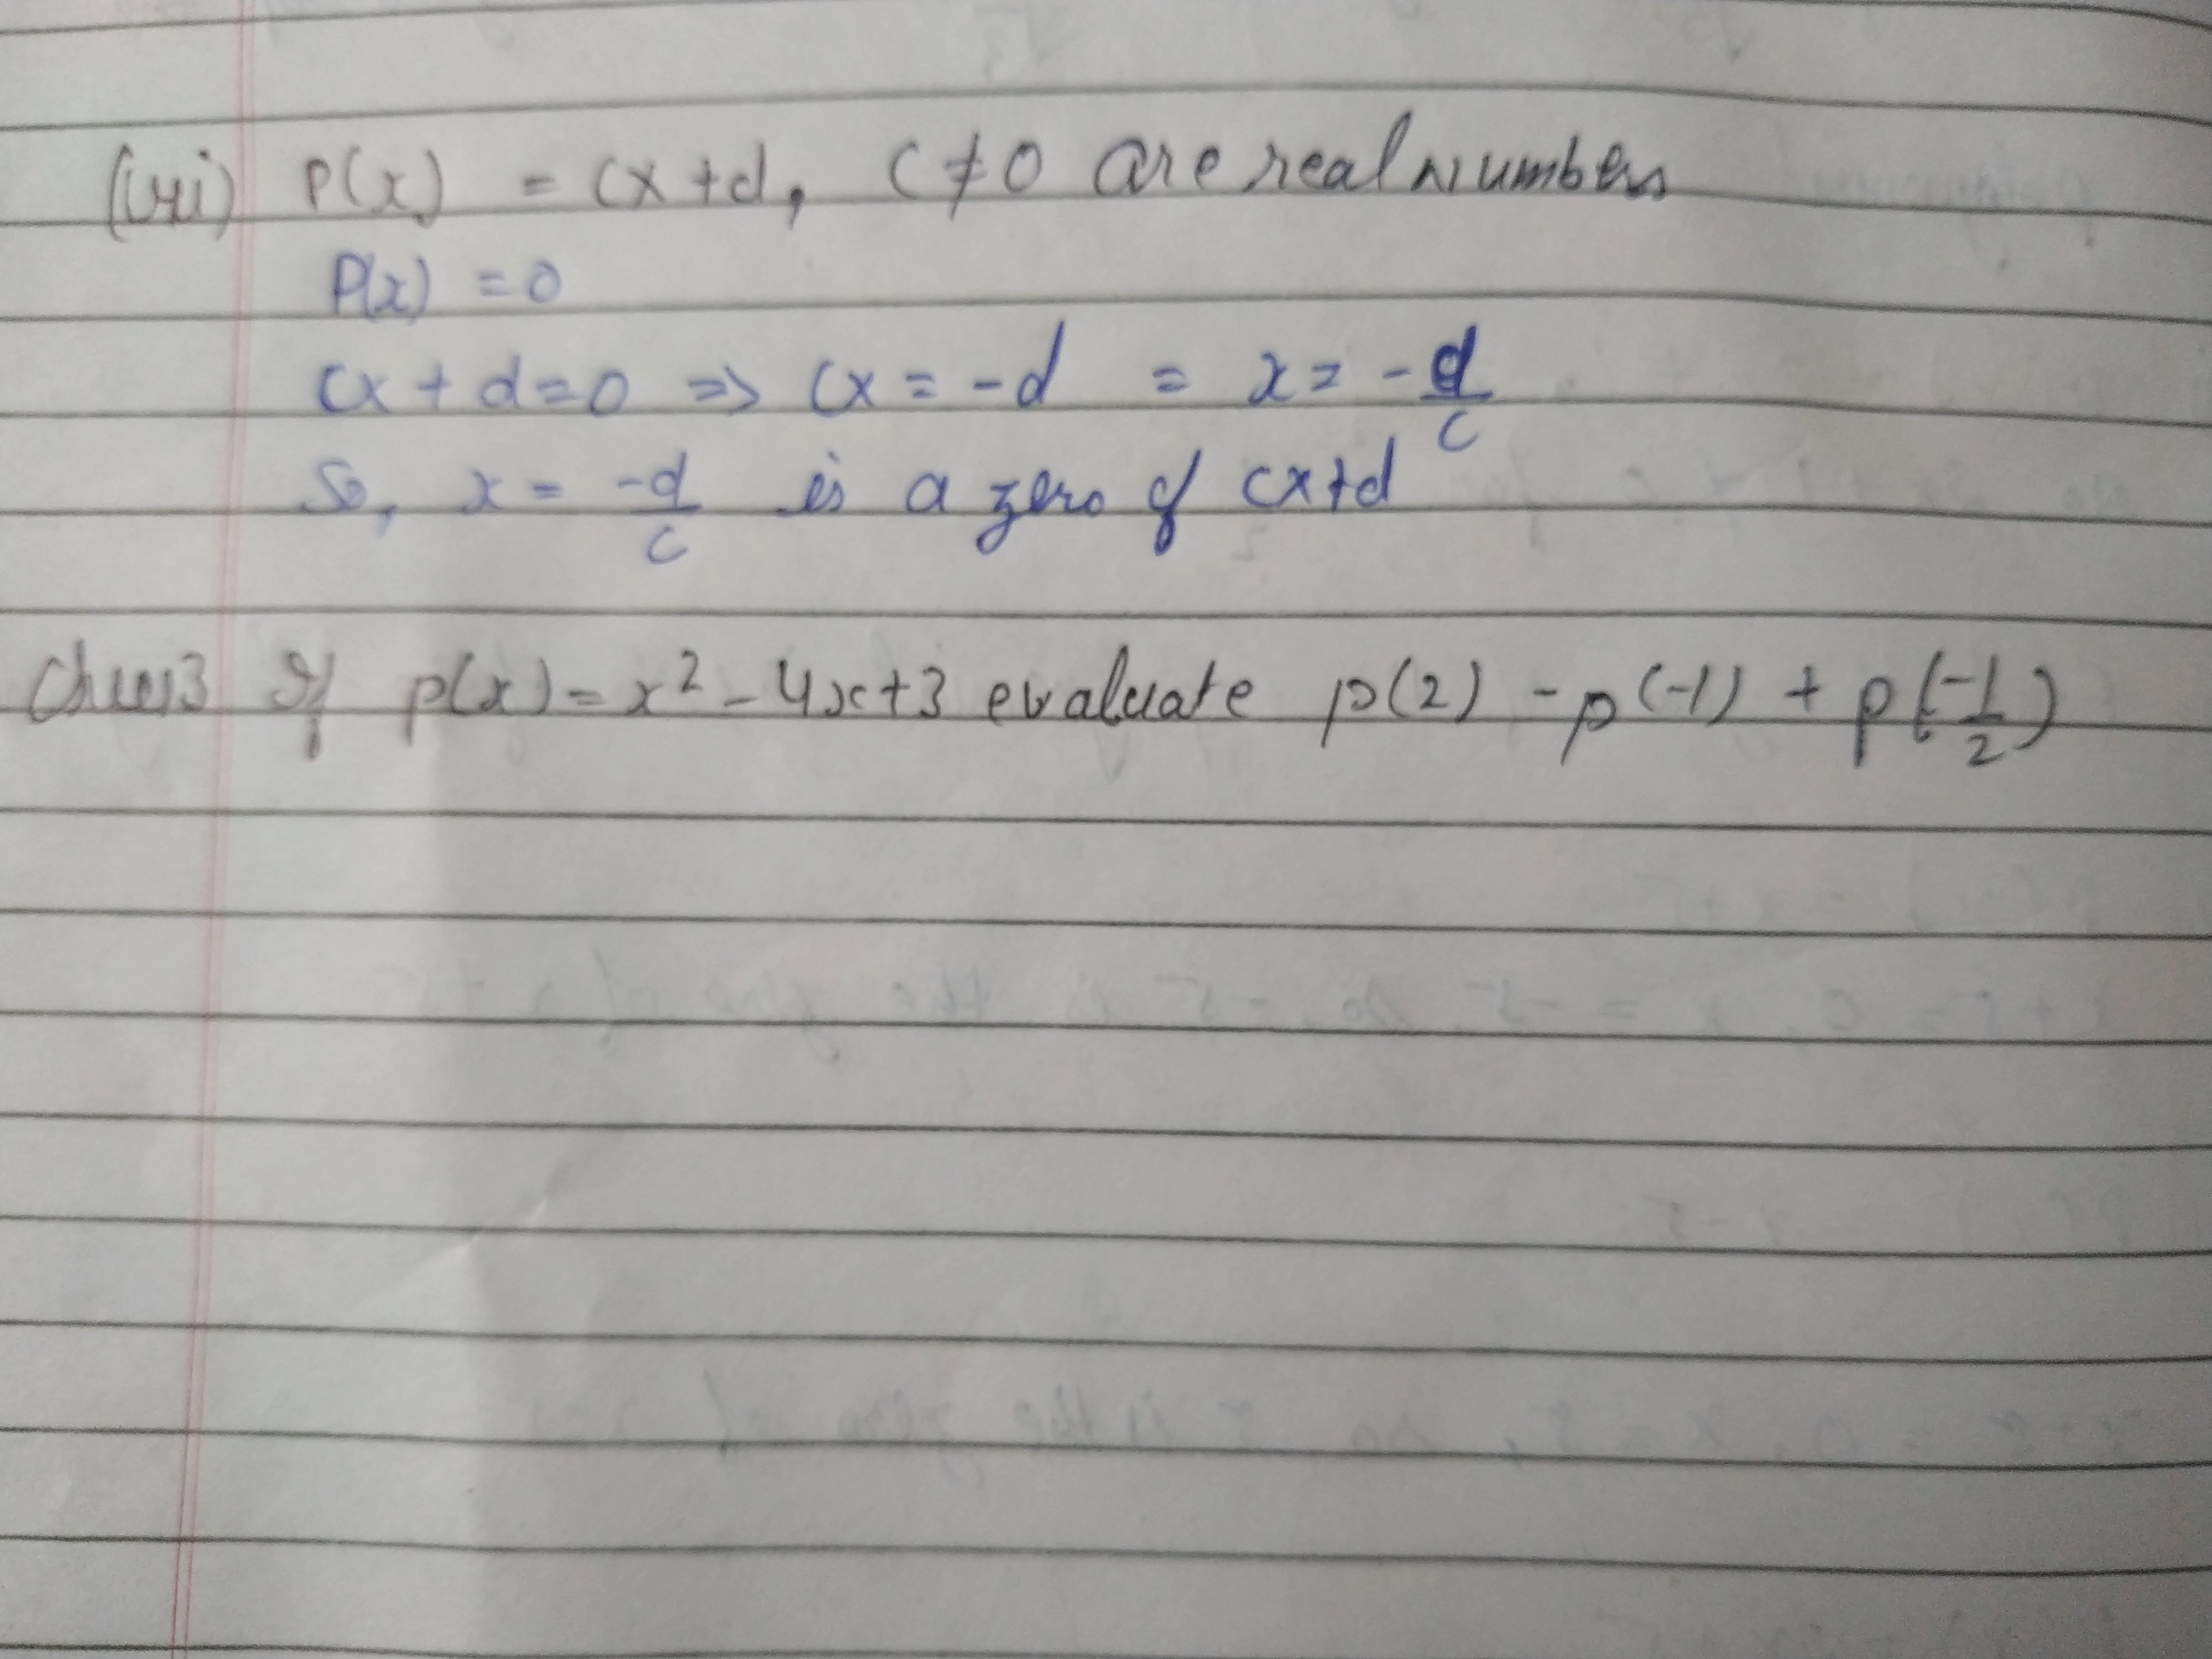 (vii) P(x) = cx+d, C≠0 are real Numbers
P(x) = 0
cx + d = 0 => cx = -d = x = -d/c
So, x = -d/c is a zero of cx+d
If p(x) = x² - 4x + 3 evaluate p(2) - p(-1) + p(-1/2)